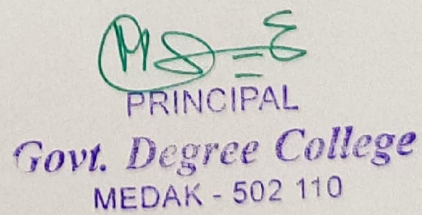 PRINCIPAL
Govt. Degree College
MEDAK - 502 110